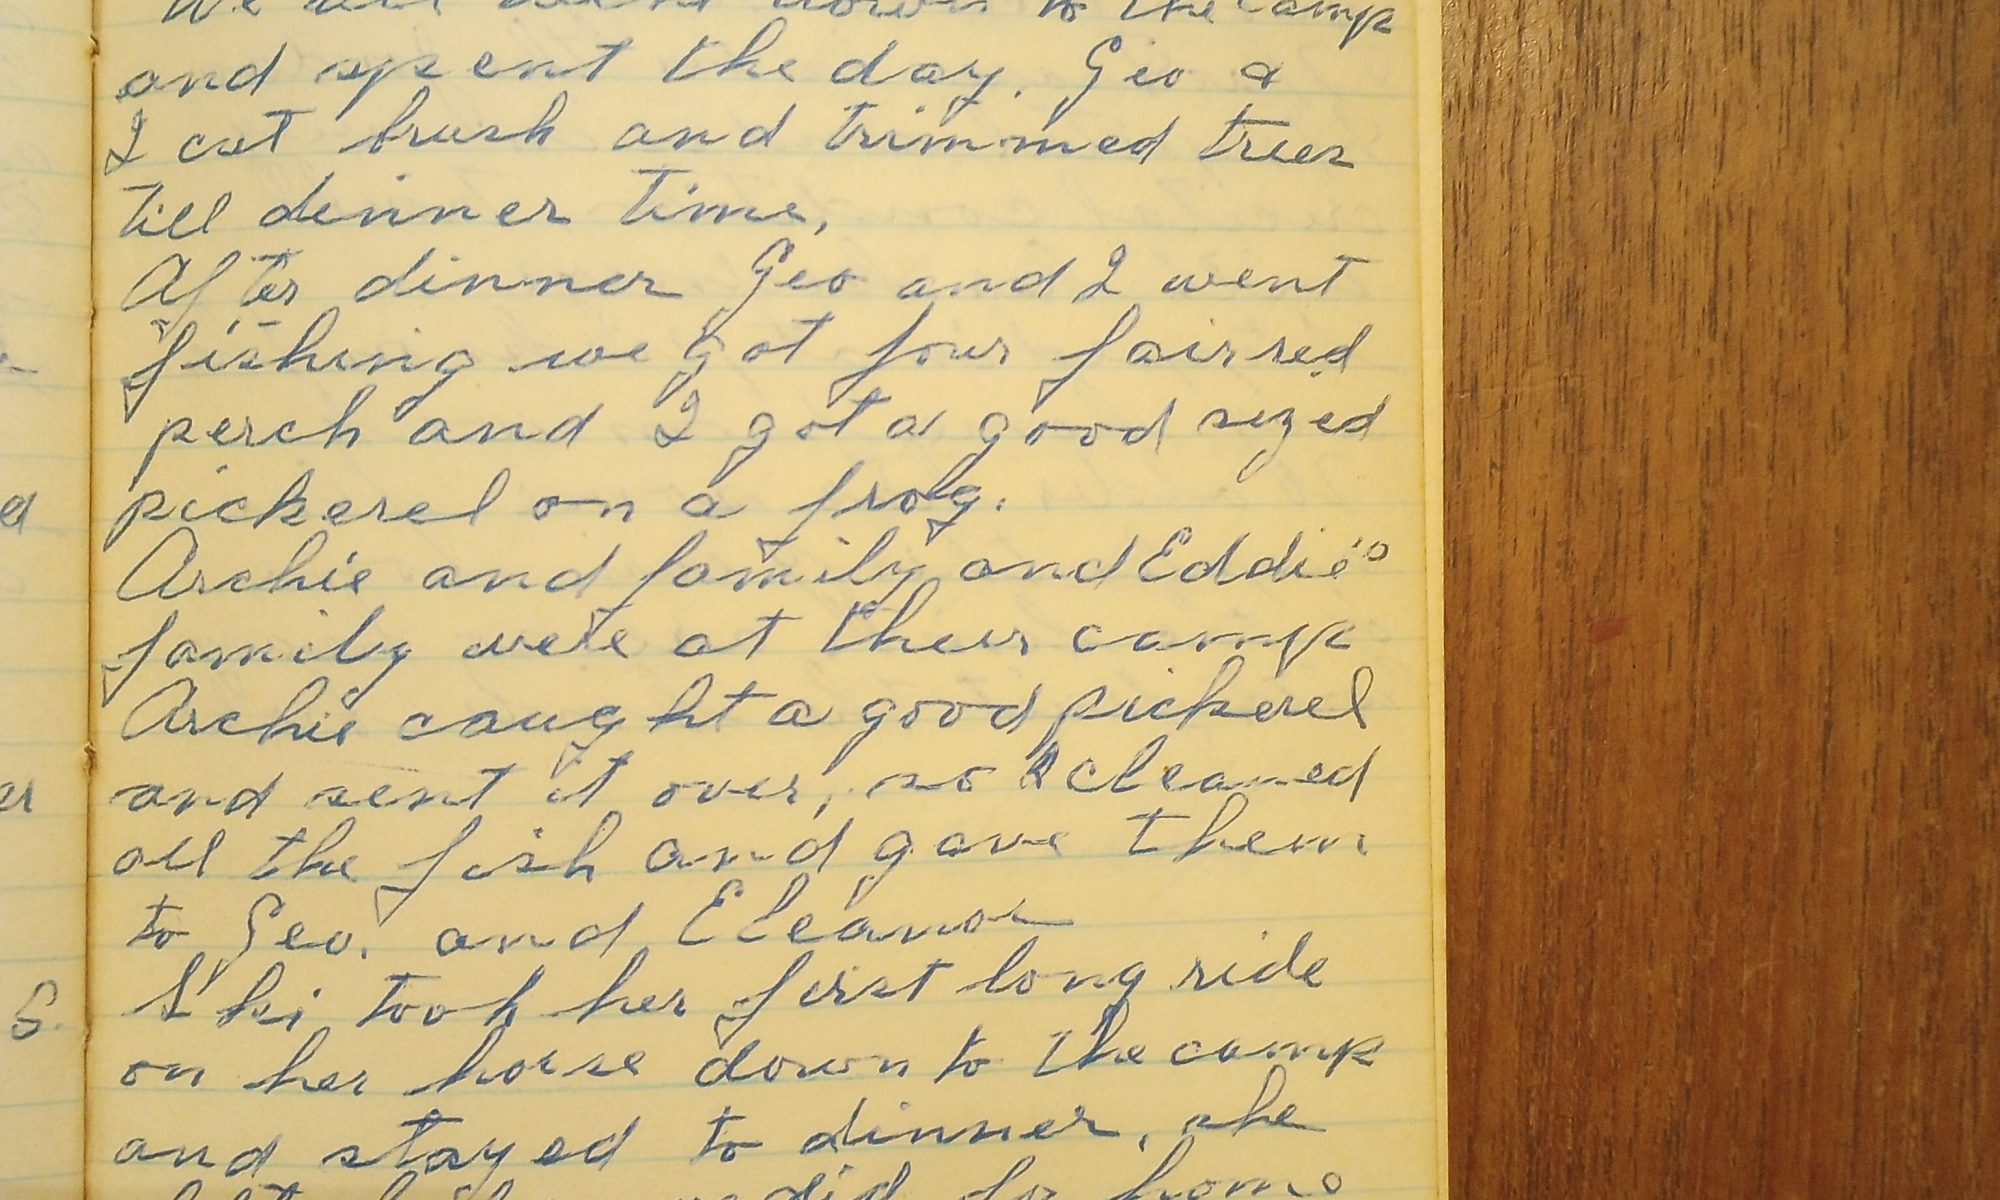 We all went down to the camp
and spent the day. Geo &
I cut brush and trimmed trees
till dinner time,
After dinner Geo and I went
fishing we got four fair red
perch and I got a good sized
pickerel on a frog.
Archie and family and Eddie's
family were at their camp
Archie caught a good pickerel
and sent it over, so I cleaned
all the fish and gave them
to Geo. and Eleanor
Ski took her first long ride
on her horse down to the camp
and stayed to dinner, she
did for home